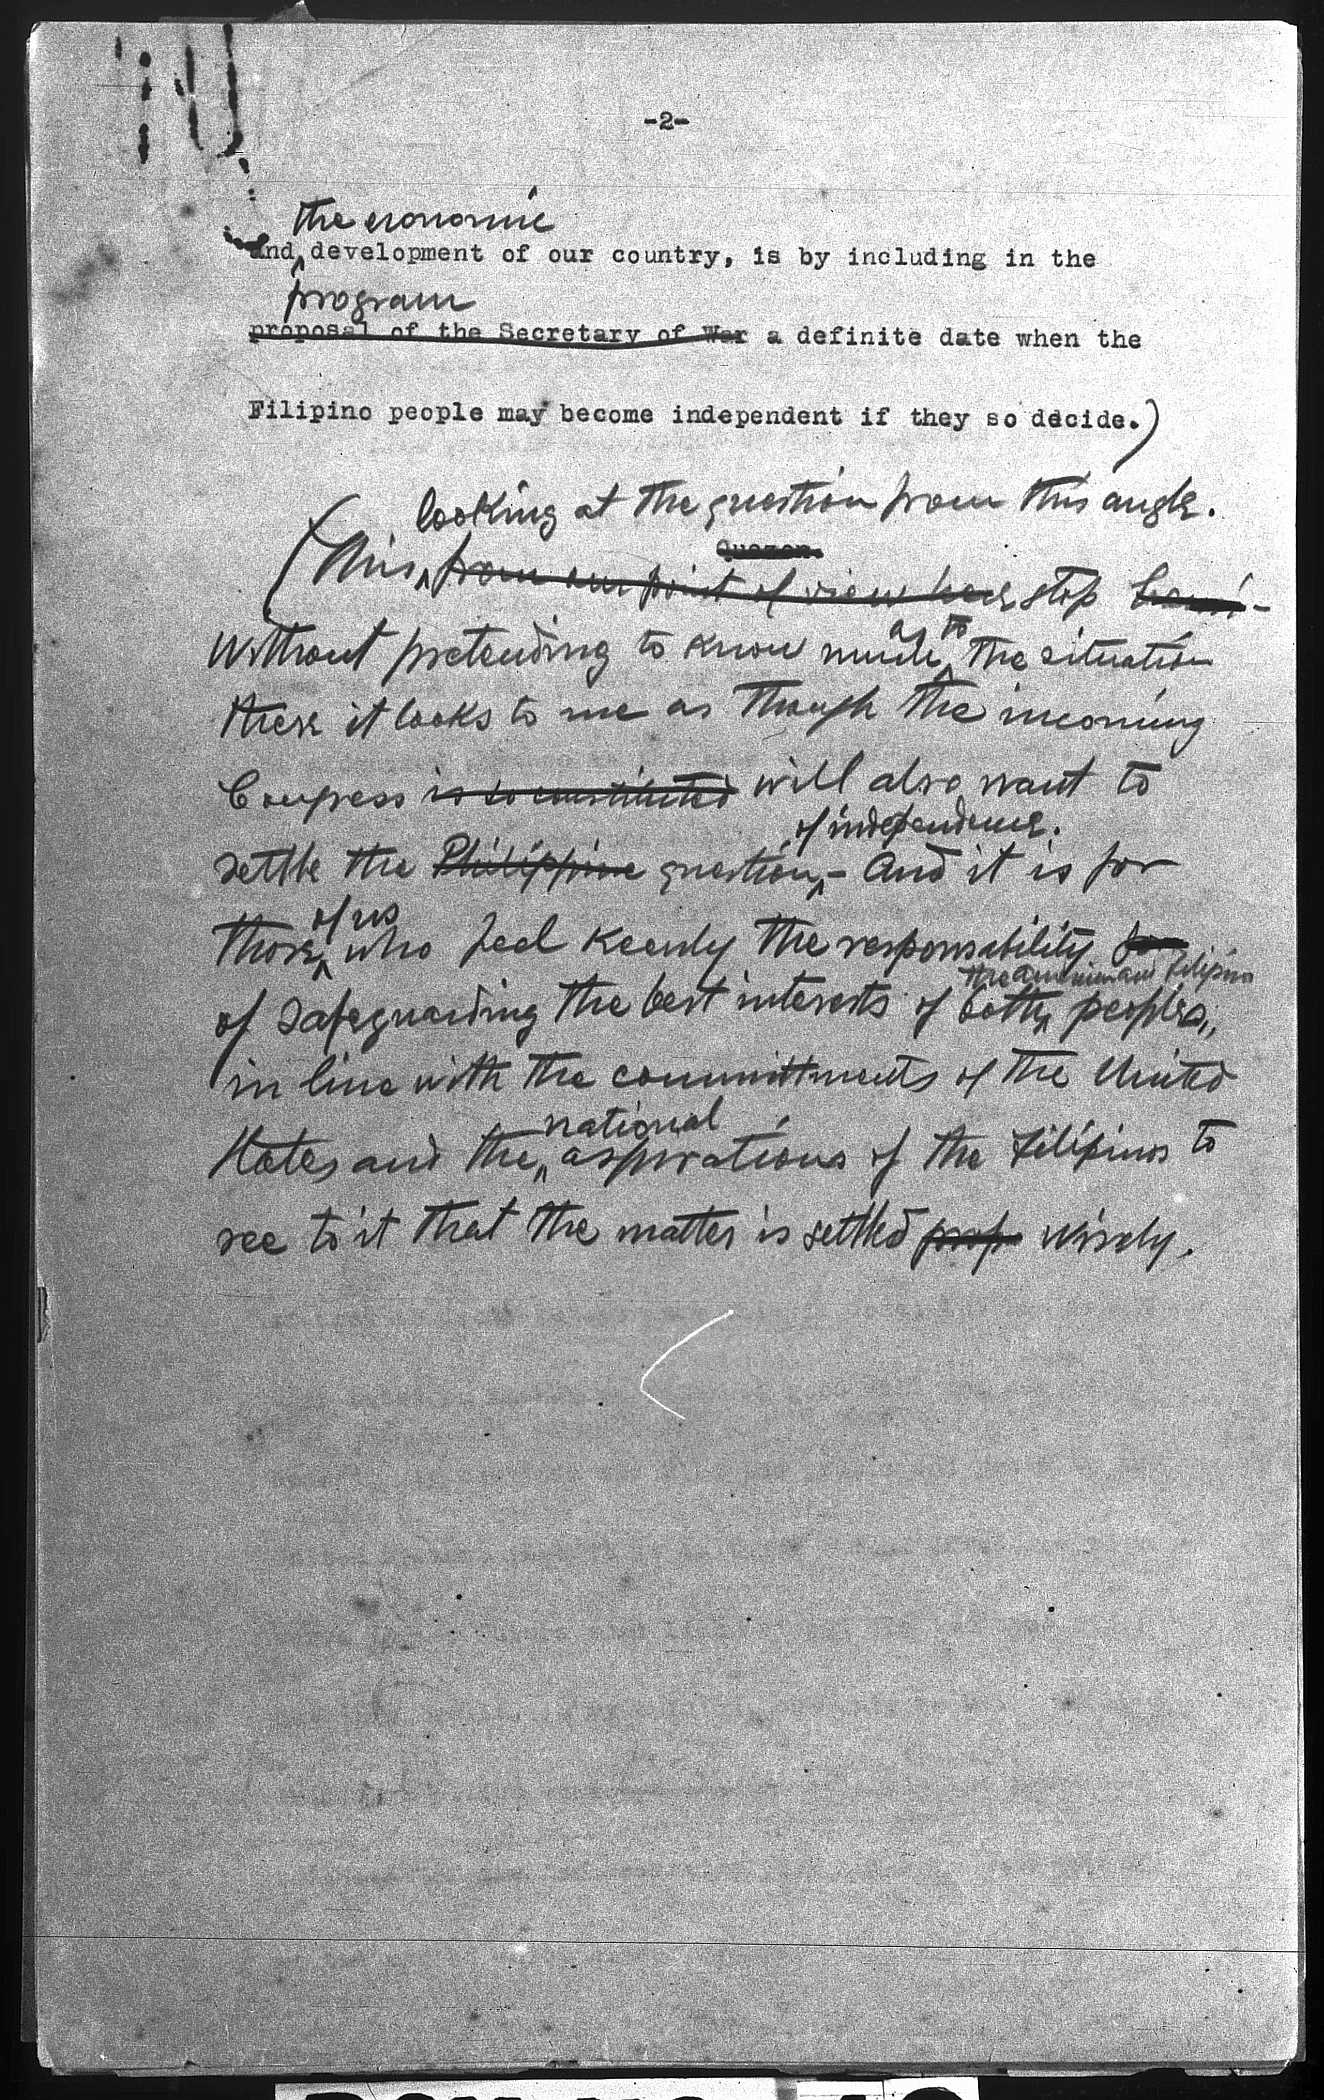 -2-
the economic
and development of our country, is by including in the
program
proposal of the Secretary of War a definite date when the
Filipino people may become independent if they so decide.)
looking at the question from this angle.
Quezon.
(This, from our point of view here, stop
as to
Without pretending to know much the situation
there it looks to me as though the incoming
Congress is so constituted will also want to
of independence.
settle the Philippine question, - And it is for
of us
those who feel keenly the responsability for
the American and Filipino
of safeguarding the best interests of both peoples,
in line with the committments of the United
national
States and the aspirations of the Filipinos to
see to it that the matter is settled prop wisely.